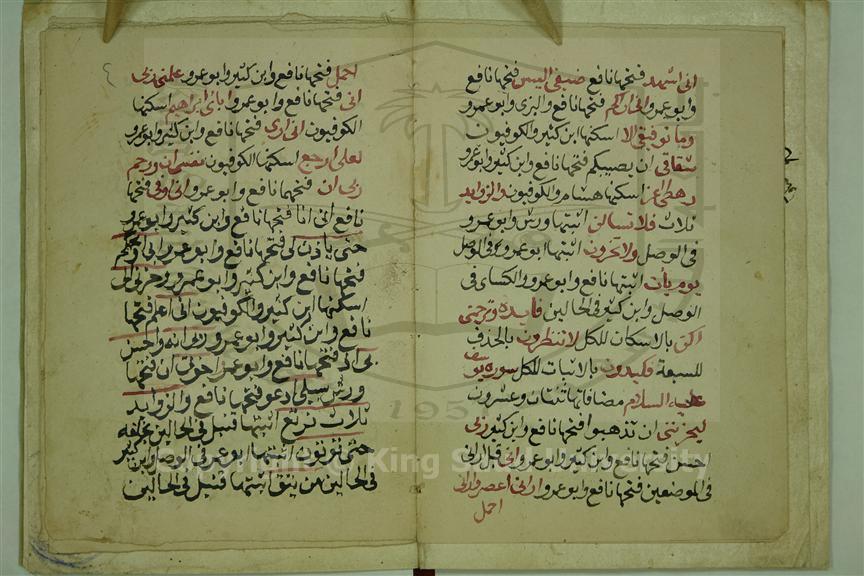 انى اشهد فتحها نافع ضيفى اليس فتحها نافع
وابو عمرو انى اراكم فتحها نافع والبزى وابو عمرو
وما توفيقى الا اسكنها ابن كثير والكوفيون
شقاقى ان يصيبكم فتحها نافع وابن كثير وابو عمرو
ارهطى اعز اسكنها هشام والكوفيون والزوايد
ثلاث فلا تسالن اثبتها ورش وابو عمرو
فى الوصل ولا تخزون اثبتها ابو عمرو فى الوصل
يوم يات اثبتها نافع وابو عمرو والكساى فى
الوصل وابن كثير فى الحالين فايدة وترحمنى
اكن بالاسكان للكل لا تنظرون بالحذف
للسبعة فكيدونى بالاثبات للكل سورة يوسف
عليه السلام مضافاتها ثنتان وعشرون
ليحزننى ان تذهبوا فتحها نافع وابن كثير ربى
احسن فتحها نافع وابن كثير وابو عمرو انى قبل ارانى
فى الموضعين فتحها نافع وابو عمرو ارانى اعصر وارانى
احمل
احمل فتحها نافع وابن كثير وابو عمرو علمنى ربى
انى فتحها نافع وابو عمرو اباى ابراهيم اسكنها
الكوفيون انى ارى فتحها نافع وابن كثير وابو عمرو
لعلى ارجع اسكنها الكوفيون نفسى ان ورحم
ربى ان فتحهما نافع وابو عمرو انى اوفى فتحها
نافع انى انا فتحها نافع وابن كثير وابو عمرو
حتى ياذن لى فتحها نافع وابو عمرو ابى او يحكم
فتحها نافع وابن كثير وابو عمرو وحزنى الى
اسكنها ابن كثير والكوفيون انى اعلم فتحها
نافع وابن كثير وابو عمرو ربى انه واحسن
بى اذ فتحها نافع وابو عمرو اخوتى ان فتحها
ورش سبيلى ادعو فتحها نافع والزوايد
ثلاث نرتع اثبتها قنبل فى الحالين بخلفه
حتى تؤتون اثبتها ابو عمرو فى الوصل وابن كثير
فى الحالين من يتق اثبتها قنبل فى الحالين
Copyright © King Saud University
195